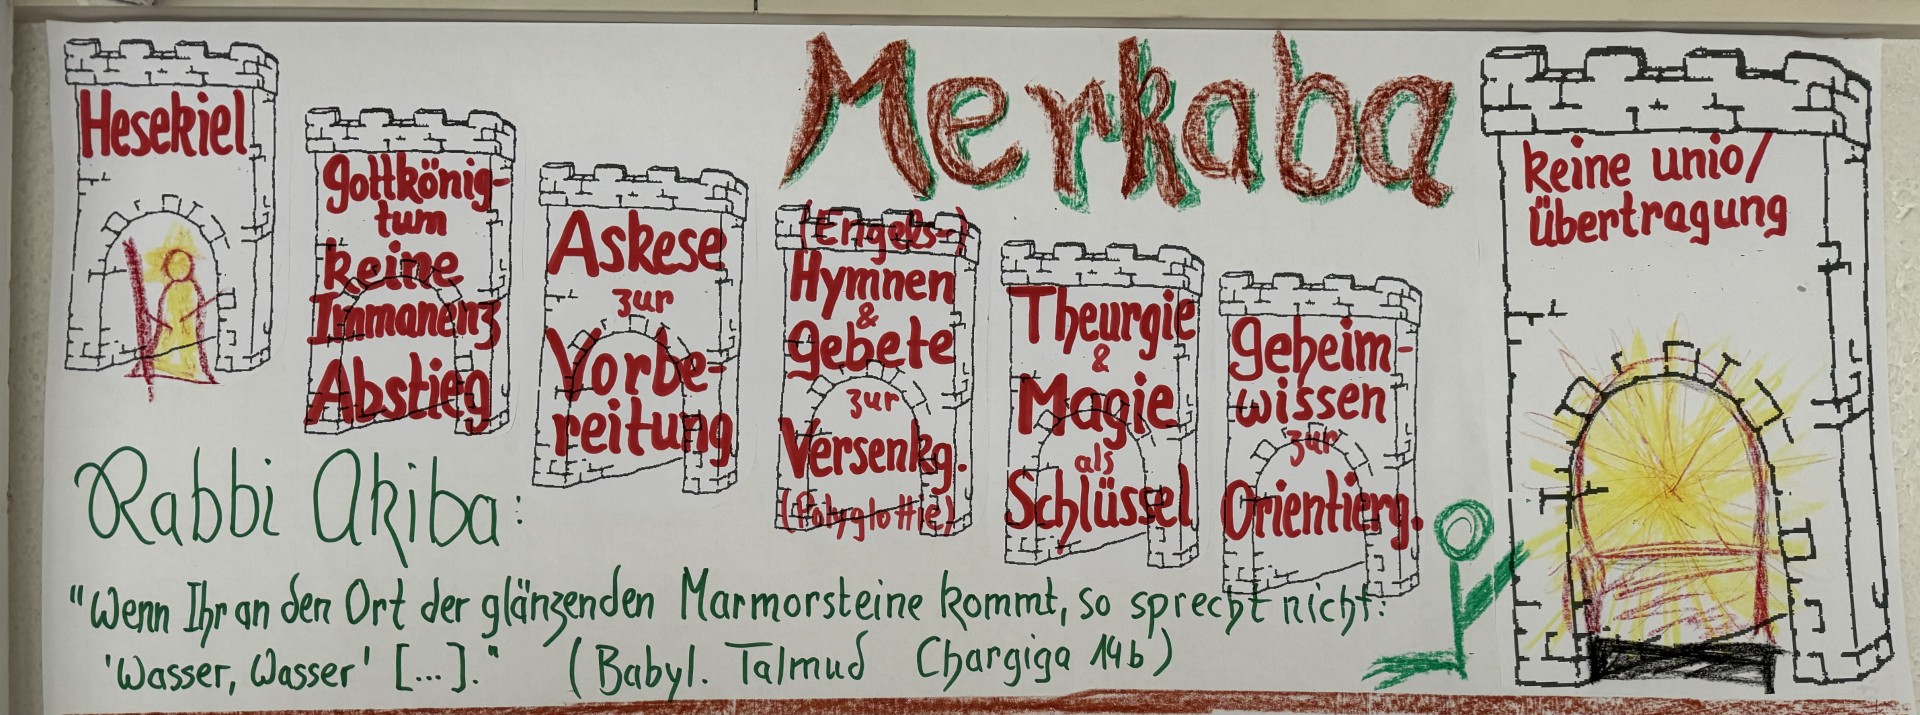 Merkaba
Hesekiel
Gottkönig-
tum
keine
Immanenz
Abstieg
Askese
zur
Vorbe-
reitung
(Engels-)
Hymnen
&
Gebete
zur
Versenkg.
(Polyglottie)
Theurgie
&
Magie
als
Schlüssel
Geheim-
wissen
zur
Orientierg.
keine unio/
Übertragung
Rabbi Akiba:
"Wenn Ihr an den Ort der glänzenden Marmorsteine kommt, so sprecht nicht:
'Wasser, Wasser' [...]." (Babyl. Talmud Chargiga 14b)